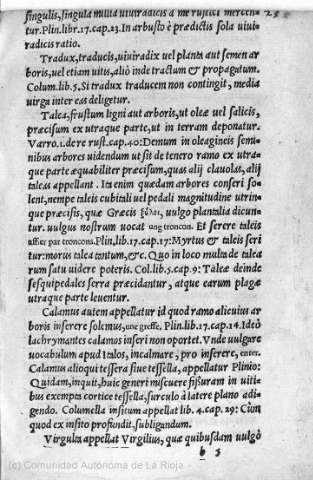 singulis, singula multa viuiradicis à me rustici mercen-
tur. Plin. libr. 17. cap. 23. In arbusto è prædictis sola viui
radicis ratio.
Tradux, traducis, viuiradix vel planta aut semen ar
boris, vel etiam vitis, aliò inde tractum & propagatum.
Colum. lib. 5. Si tradux traducem non contingit, media
virga inter eas deligetur.
Talea, frustum ligni aut arboris, vt oleæ vel salicis,
præcisum ex vtraque parte, vt in terram deponatur.
Varro. 1. de re rust. cap. 40: Demum in oleagineis semi-
nibus arbores videndum vt sit de tenero ramo ex vtra-
que parte æquabiliter præcisum, quas alij clauolas, alij
taleas appellant. Ita enim quædam arbores conseri so-
lent, nempe taleis cubitali vel pedali magnitudine vtrin-
que præcisis, quæ Græcis vulgo plantalia dicun-
tur. vulgus nostrum vocat vng troncon. Et serere taleis
affier par troncons. Plin. lib. 17. cap. 17: Myrtus & taleis seri
tur: morus talea tantum, &c. Quo in loco multa de talea
rum satu videre poteris. Col. lib. 5. cap. 9: Taleæ deinde
sesquipedales serra præcidantur, atque earum plagæ
vtraque parte leuentur.
Calamus autem appellatur id quod ramo alicuius ar
boris inserere solemus, vne greffe. Plin. lib. 17. cap. 14. Ideò
lachrymantes calamos inseri non oportet. Vnde vulgare
vocabulum apud Italos, incalmare, pro inserere, enter.
Calamus alioqui tessera siue tessella, appellatur Plinio:
Quidam, inquit, huic generi miscuere fissuram in viti-
bus exempta cortice tessella, surculo à latere plano adi-
gendo. Columella insitum appellat lib. 4. cap. 29: Cùm
quod ex insito profindit, subligandum.
Virgulta appellat Virgilius, quæ quibusdam vulgò
b 3
(c) Comunidad Autónoma de La Rioja